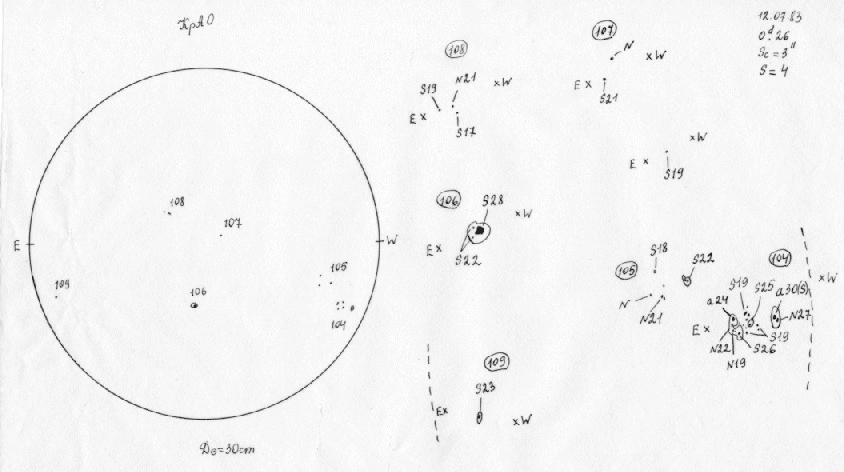 КрАО
12.07.83
0ᵈ.26
Sc = 3"
S = 4
E
W
108
107
105
109
106
104
D⊙ = 30 cm
108
S19
N21
x W
E x
S17
107
N
x W
E x
S21
x W
E x
S19
106
S28
x W
E x
S22
105
S18
S22
N
N21
104
S19
S25
a30(S)
x W
a24
N27
E x
S19
N22
S26
N19
109
S23
Ex
x W